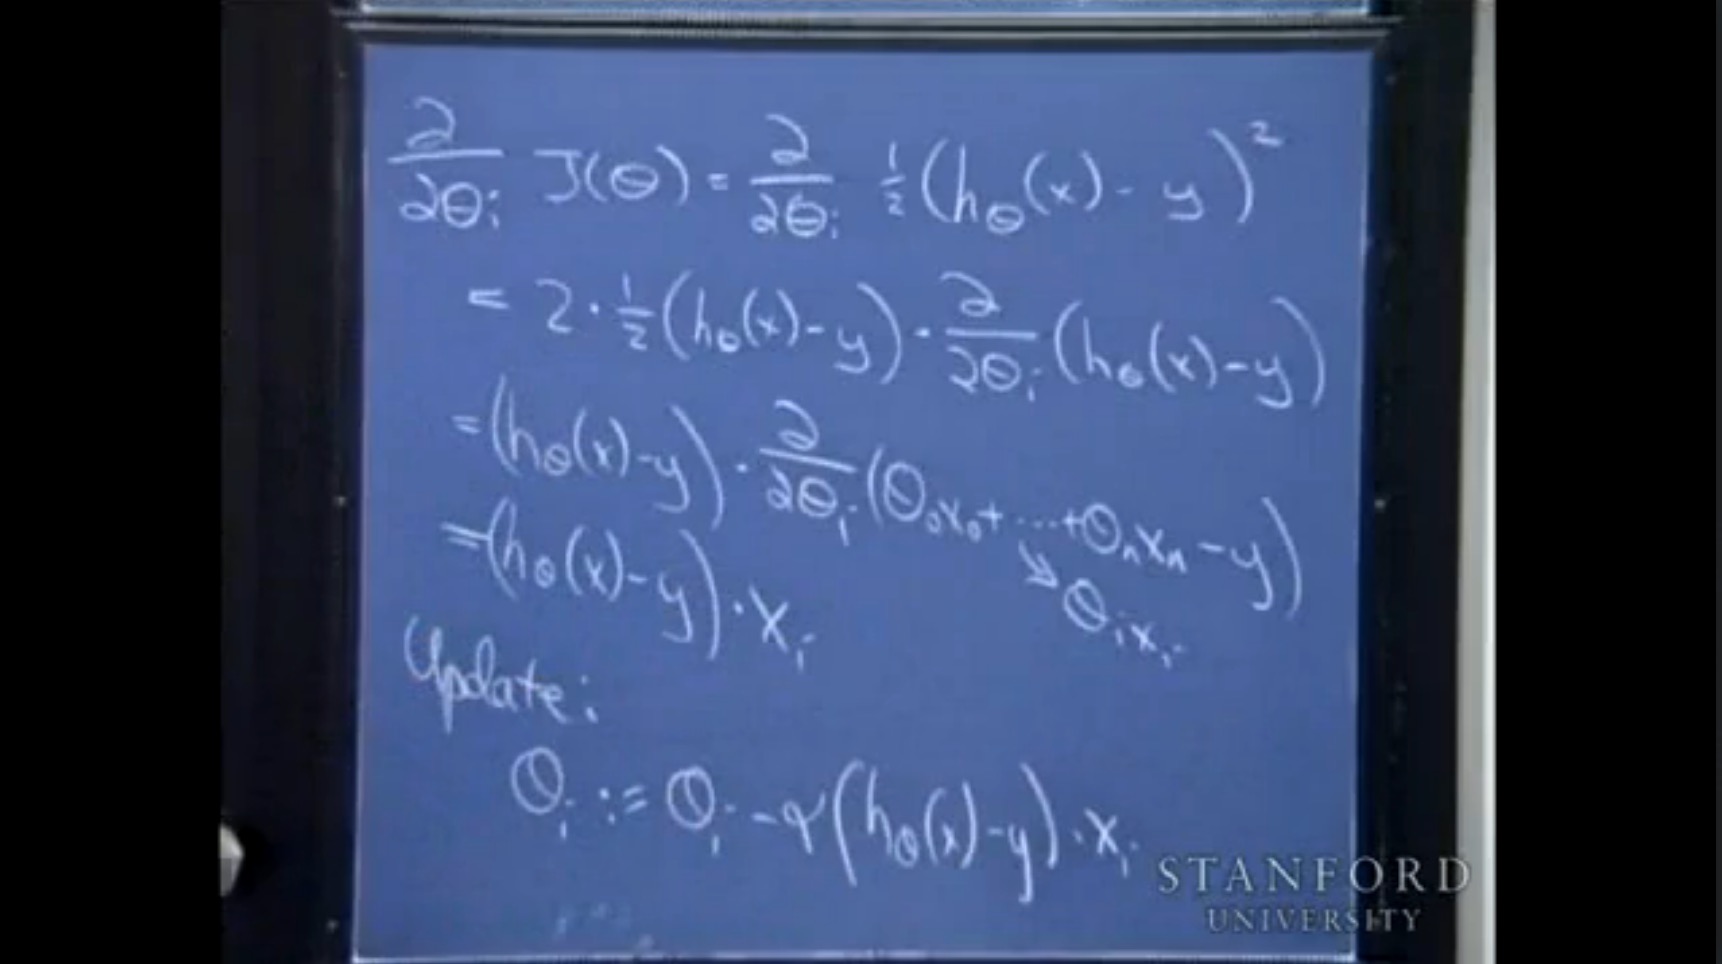 ∂/∂θᵢ J(θ) = ∂/∂θᵢ ½(h_θ(x) - y)²
= 2 · ½(h_θ(x) - y) · ∂/∂θᵢ (h_θ(x) - y)
= (h_θ(x) - y) · ∂/∂θᵢ (θ₀x₀ + ... + θₙxₙ - y)
↘ θᵢxᵢ
= (h_θ(x) - y) · xᵢ
Update:
θᵢ := θᵢ - α(h_θ(x) - y) · xᵢ
STANFORD
UNIVERSITY